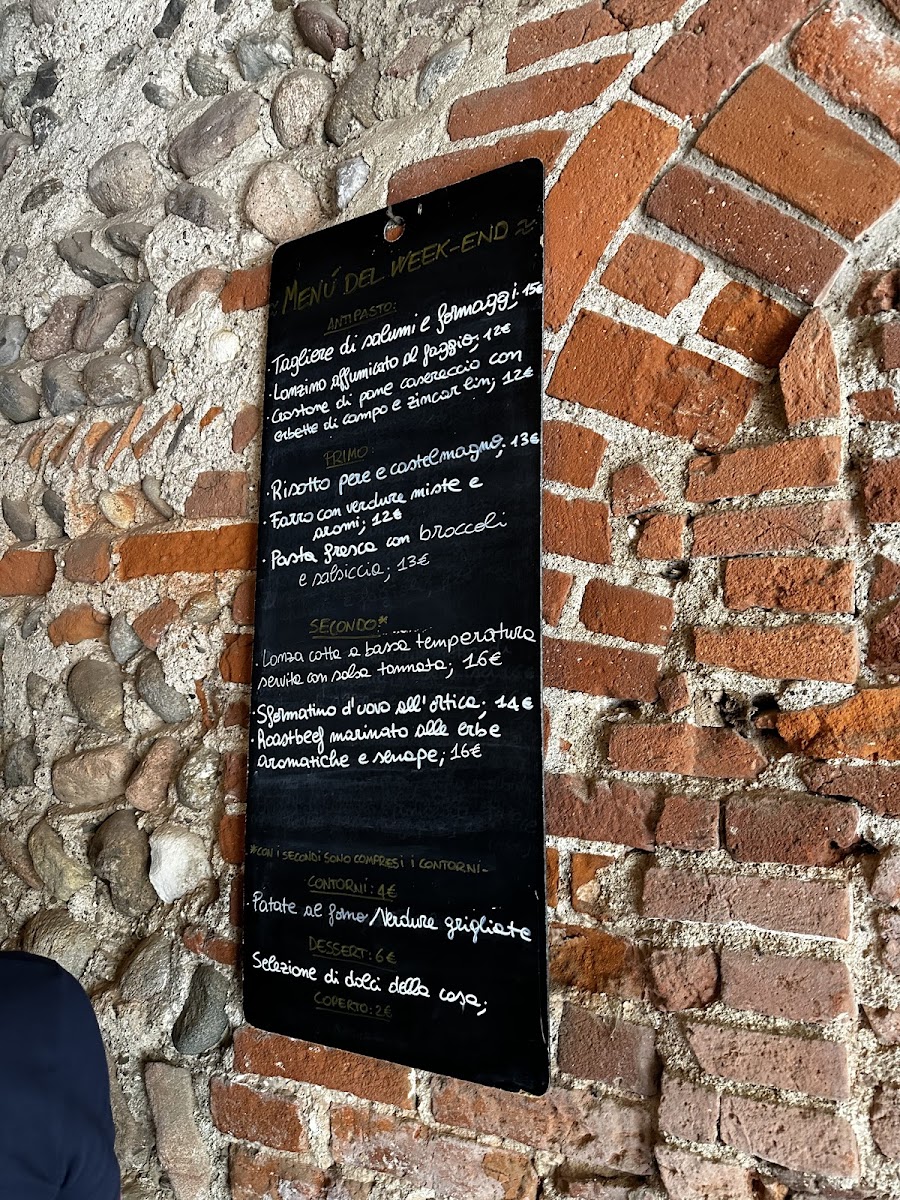 MENÚ DEL WEEK-END
ANTIPASTO:
• Tagliere di salumi e formaggi. 15€
• Lonzino affumicato al faggio; 12€
• Crostone di pane casereccio con
erbette di campo e zincarlin; 12€
PRIMO:
• Risotto pere e castelmagno, 13€
• Farro con verdure miste e
aromi; 12€
• Pasta fresca con broccoli
e salsiccia; 13€
SECONDO*
• Lonza cotta a bassa temperatura
servita con salsa tonnata; 16€
• Sformatino d'uovo all'ortica; 14€
• Roastbeef marinato alle erbe
aromatiche e senape; 16€
*CON I SECONDI SONO COMPRESI I CONTORNI-
CONTORNI: 4€
• Patate al forno/Verdure grigliate
DESSERT: 6€
Selezione di dolci della casa;
COPERTO: 2€